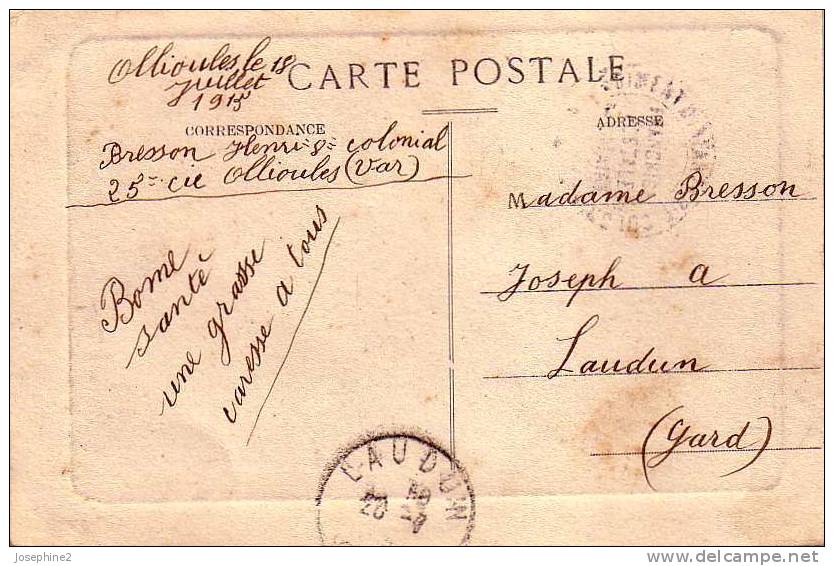 Ollioules le 18
Juillet
1915
CARTE POSTALE
CORRESPONDANCE
ADRESSE
Bresson Henri 8e colonial
25e cie Ollioules (Var)
Bonne
santé
une grasse
caresse a tous
Madame Bresson
Joseph a
Laudun
(Gard)
LAUDUN
Josephine2
delcampe.net